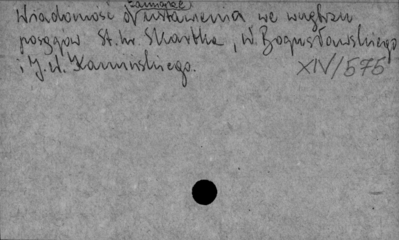 zamiarze
Wiadomość o ustawieniu we wnętrzu
posągów St. hr. Skarbka, W. Bogusławskiego
i J. N. Kamińskiego.
XIV/575